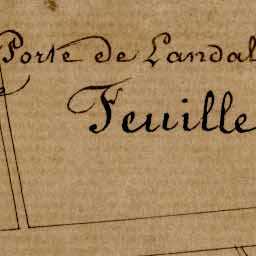 Porte de Landal
Feuille